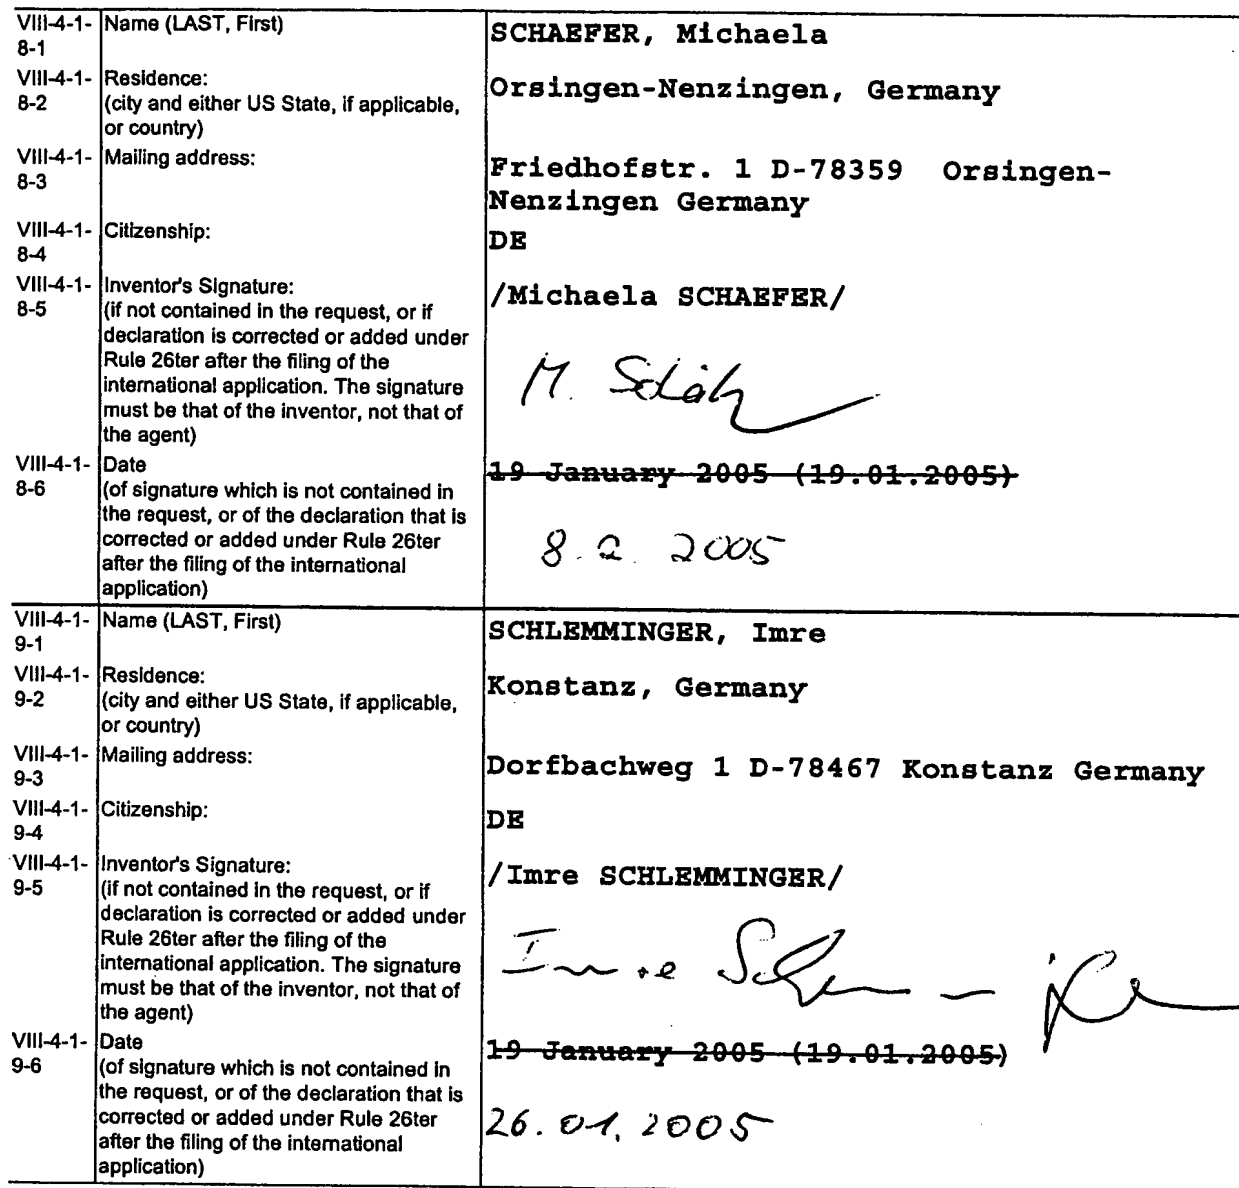 VIII-4-1-8-1 Name (LAST, First) SCHAEFER, Michaela
VIII-4-1-8-2 Residence: Orsingen-Nenzingen, Germany
(city and either US State, if applicable,
or country)
VIII-4-1-8-3 Mailing address: Friedhofstr. 1 D-78359 Orsingen-
Nenzingen Germany
VIII-4-1-8-4 Citizenship: DE
VIII-4-1-8-5 Inventor's Signature: /Michaela SCHAEFER/
(if not contained in the request, or if
declaration is corrected or added under
Rule 26ter after the filing of the
international application. The signature
must be that of the inventor, not that of
the agent)
M.
VIII-4-1-8-6 Date 19 January 2005 (19.01.2005)
(of signature which is not contained in
the request, or of the declaration that is
corrected or added under Rule 26ter
after the filing of the international
application)
8.2. 2005
VIII-4-1-9-1 Name (LAST, First) SCHLEMMINGER, Imre
VIII-4-1-9-2 Residence: Konstanz, Germany
(city and either US State, if applicable,
or country)
VIII-4-1-9-3 Mailing address: Dorfbachweg 1 D-78467 Konstanz Germany
VIII-4-1-9-4 Citizenship: DE
VIII-4-1-9-5 Inventor's Signature: /Imre SCHLEMMINGER/
(if not contained in the request, or if
declaration is corrected or added under
Rule 26ter after the filing of the
international application. The signature
must be that of the inventor, not that of
the agent)
Imre
VIII-4-1-9-6 Date 19 January 2005 (19.01.2005)
(of signature which is not contained in
the request, or of the declaration that is
corrected or added under Rule 26ter
after the filing of the international
application)
26.01.2005